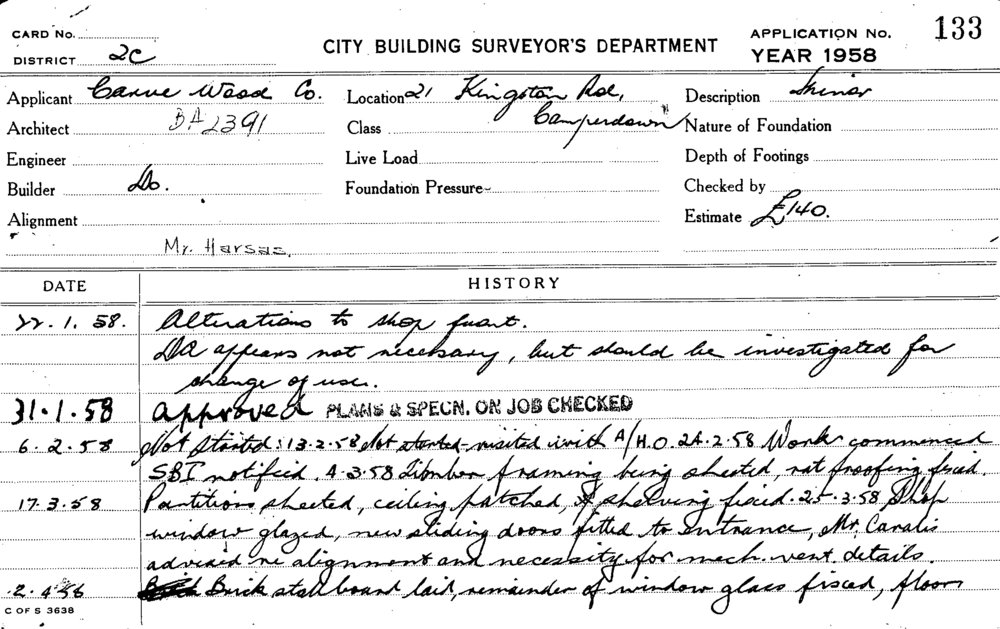 CARD No.
CITY BUILDING SURVEYOR'S DEPARTMENT
APPLICATION No. 133
DISTRICT 2C
YEAR 1958
Applicant Carve Wood Co. Location 21 Kingston Rd, Description Minor
Architect BA 2391 Class Camperdown Nature of Foundation
Engineer Live Load Depth of Footings
Builder Do. Foundation Pressure Checked by
Alignment Estimate £140.
Mr. Harsas.
DATE HISTORY
22.1.58. Alterations to shop front.
DA appears not necessary, but should be investigated for
change of use.
31.1.58 approved PLANS & SPECN. ON JOB CHECKED
6.2.58 Not started: 13-2-58 Not started-visited with A/H.O. 24.2.58 Work commenced
SBI notified. 4.3.58 Timber framing being sheeted, rat proofing fixed.
17.3.58 Partitions sheeted, ceiling patched, shelving fixed. 25.3.58 Shop
window glazed, new sliding doors fitted to entrance, Mr. Canalis
advised re alignment and necessity for mech. vent. details.
2.4.58 Brick stallboard laid, remainder of window glass fixed, floor
C OF S 3638